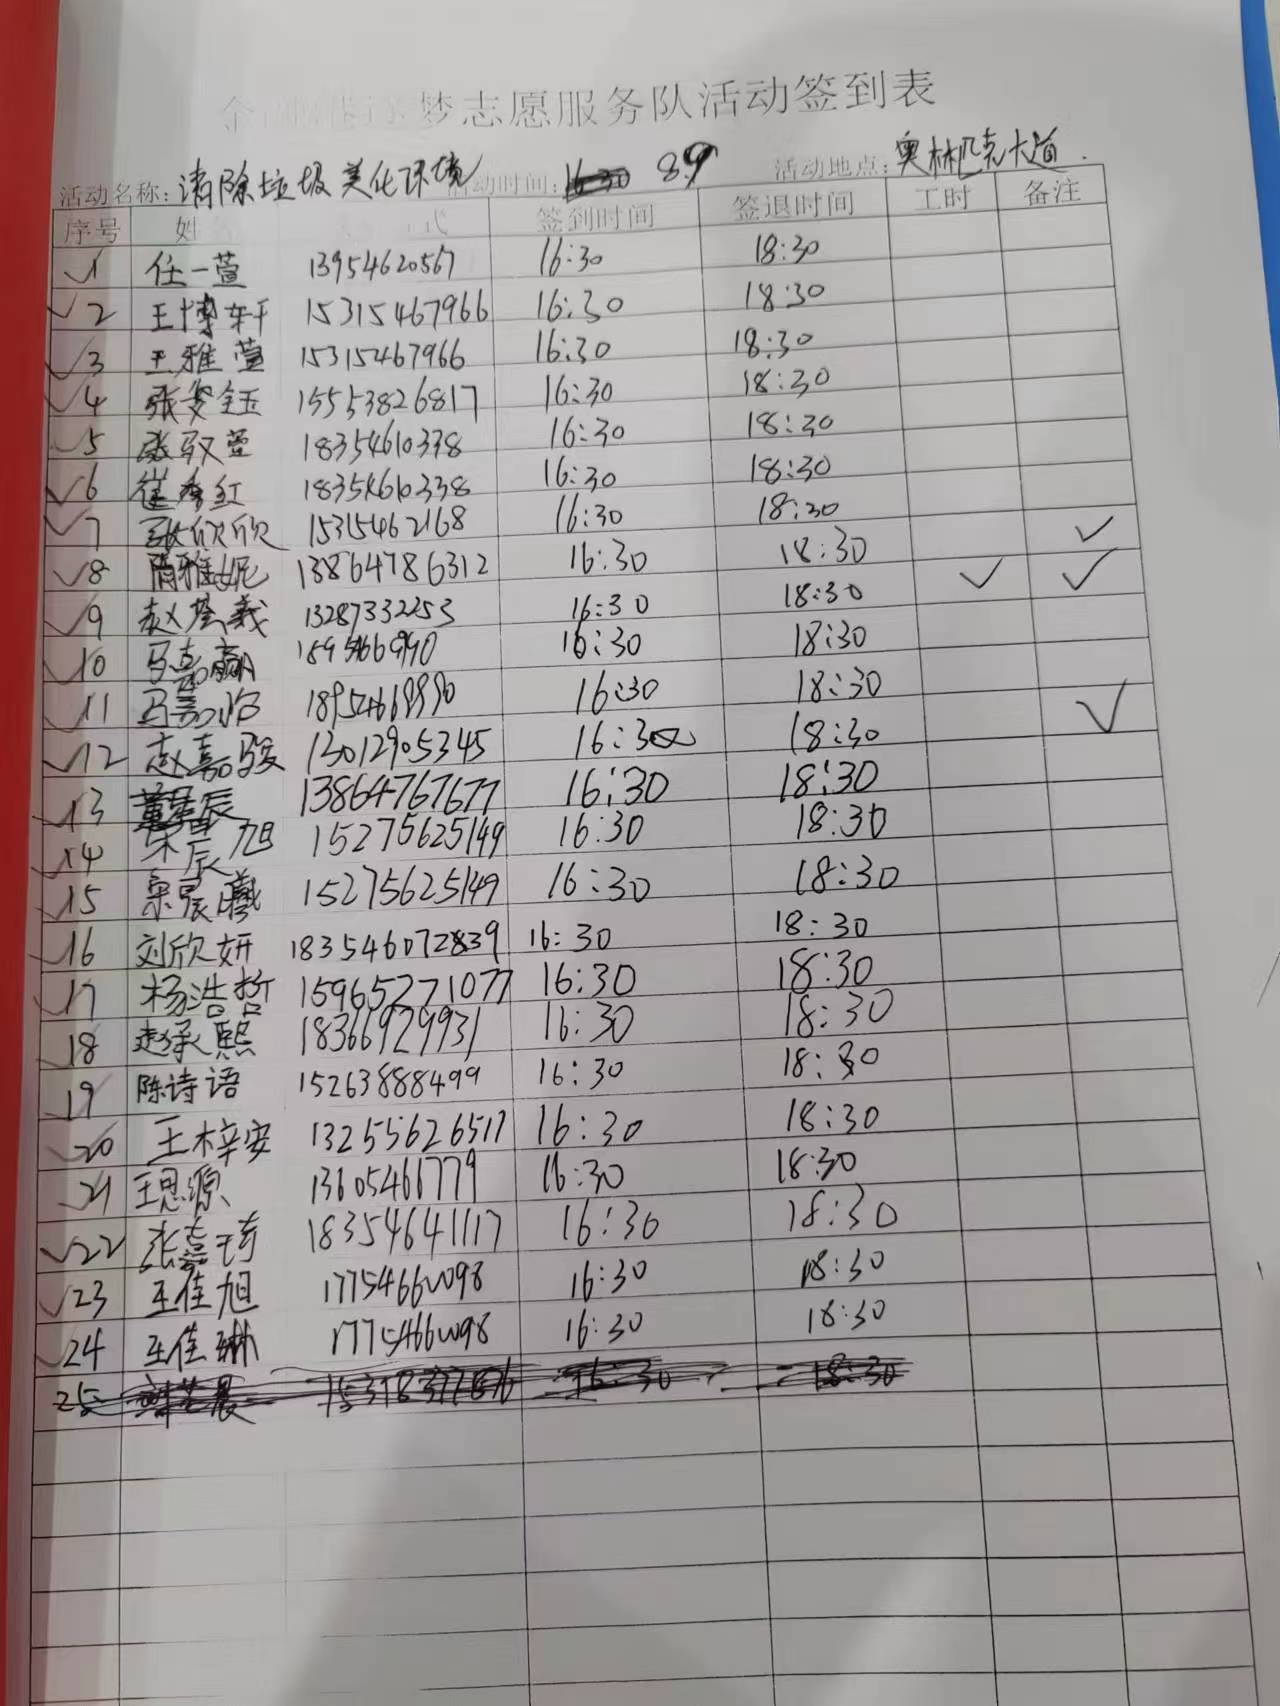 梦志愿服务队活动签到表
活动名称: 清除垃圾美化环境 活动时间: 8.9 活动地点: 奥林匹克大道.
序号 姓 式 签到时间 签退时间 工时 备注
1 任一萱 13954620567 16:30 18:30
2 王博轩 15315467966 16:30 18:30
3 王雅萱 15315467966 16:30 18:30
4 张安钰 15553826817 16:30 18:30
5 张驭萱 18354610338 16:30 18:30
6 崔秀红 18354610338 16:30 18:30
7 张欣欣 15315462168 16:30 18:30 ✓
8 隋雅妮 13864786312 16:30 18:30 ✓ ✓
9 赵 13287332253 16:30 18:30
10 马嘉 16:30 18:30
11 马嘉 16:30 18:30 ✓
12 赵嘉骏 13012905345 16:30 18:30
13 13864767677 16:30 18:30
14 辰旭 15275625149 16:30 18:30
15 晨曦 15275625149 16:30 18:30
16 刘欣妍 183546072839 16:30 18:30
17 杨浩哲 15965271077 16:30 18:30
18 赵承熙 18366929931 16:30 18:30
19 陈诗语 15263888499 16:30 18:30
20 王梓安 13255626517 16:30 18:30
21 王思源 13605461779 16:30 18:30
22 张嘉琦 18354641117 16:30 18:30
23 王佳旭 17754660098 16:30 18:30
24 王佳琳 17754660098 16:30 18:30
25 16:30 18:30